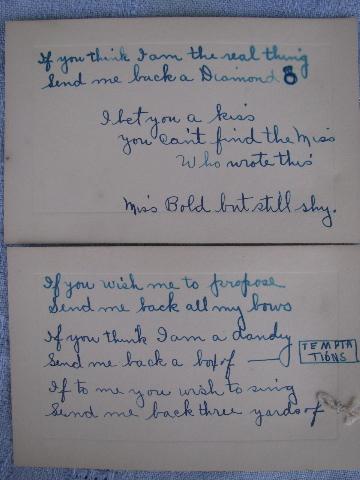 If you think I am the real thing
Send me back a Diamond 8
I bet you a kiss
You Can't find the Miss
Who wrote this
Miss Bold but still shy.
If you wish me to propose
Send me back all my bows
If you think I am a dandy
Send me back a box of
TEMPTA
TIONS
If to me you wish to sing
Send me back three yards of